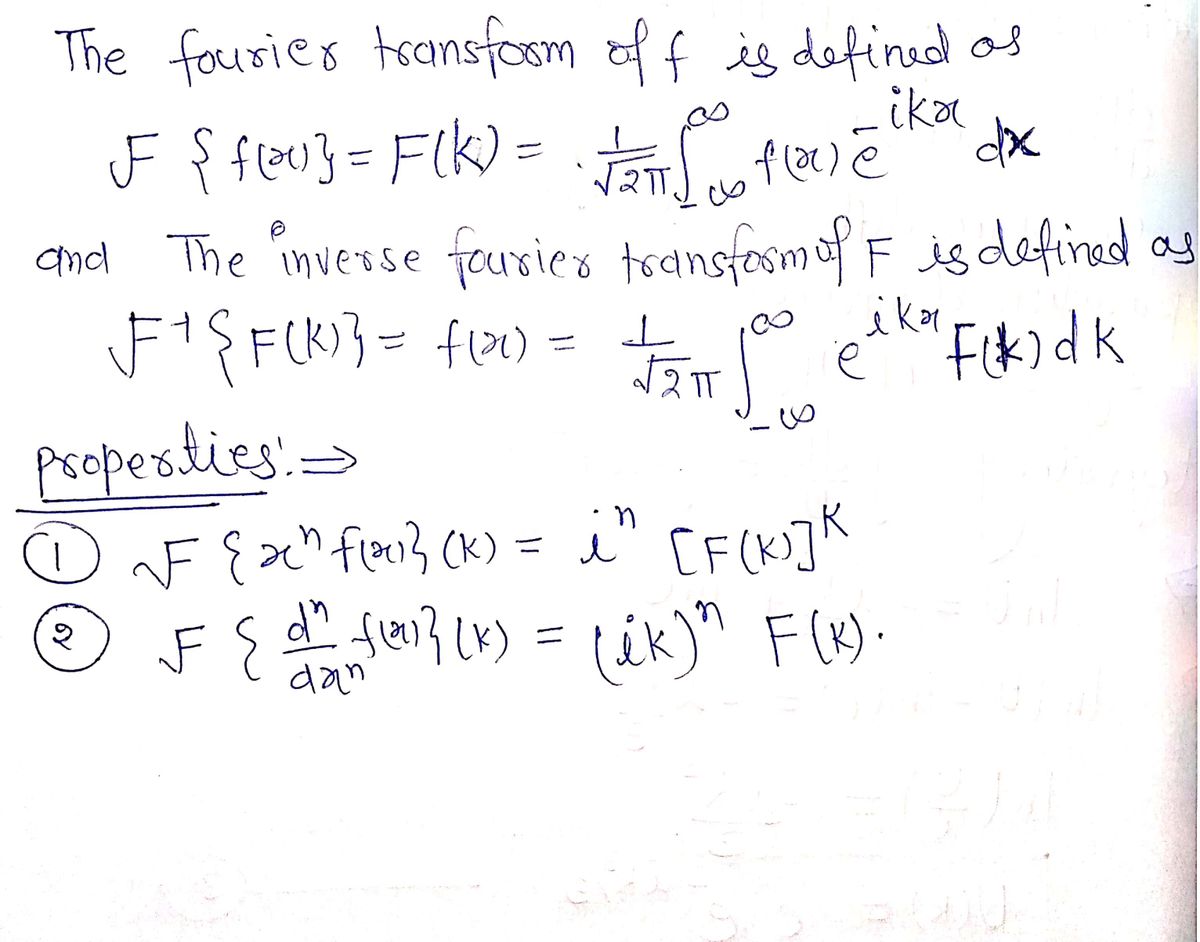 The fourier transform of f is defined as
F { f(x)} = F(k) = 1/√2π ∫_-∞^∞ f(x) e^-ikx dx
and The inverse fourier transform of F is defined as
F^-1 { F(k)} = f(x) = 1/√2π ∫_-∞^∞ e^ikx F(k) dk
properties:⇒
① F { x^n f(x)} (k) = i^n [F(k)]^k
② F { d^n/dx^n f(x)} (k) = (ik)^n F(k).